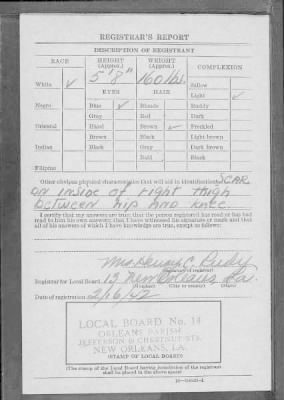 REGISTRAR'S REPORT
DESCRIPTION OF REGISTRANT
RACE HEIGHT (Approx.) WEIGHT (Approx.) COMPLEXION
5' 8" 160 lbs.
White ✓ Sallow
EYES HAIR Light ✓
Negro Blue ✓ Blonde Ruddy
Gray Red Dark
Oriental Hazel Brown ✓ Freckled
Brown Black Light brown
Indian Black Gray Dark brown
Bald Black
Filipino
Other obvious physical characteristics that will aid in identification SCAR
ON inside of right thigh
between hip AND knee.
I certify that my answers are true; that the person registered has read or has had
read to him his own answers; that I have witnessed his signature or mark and that
all of his answers of which I have knowledge are true, except as follows:
Mrs. C.
(Signature of registrar)
Registrar for Local Board 13 New Orleans La.
(Number) (City or county) (State)
Date of registration 2/16/42
LOCAL BOARD No. 14
ORLEANS PARISH
JEFFERSON & CHESTNUT STS.
NEW ORLEANS, LA.
(STAMP OF LOCAL BOARD)
(The stamp of the Local Board having jurisdiction of the registrant
shall be placed in the above space)